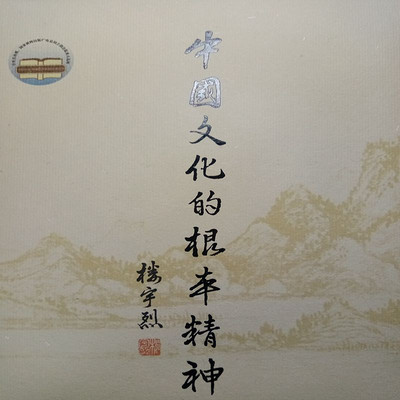 中國文化的根本精神
楼宇烈